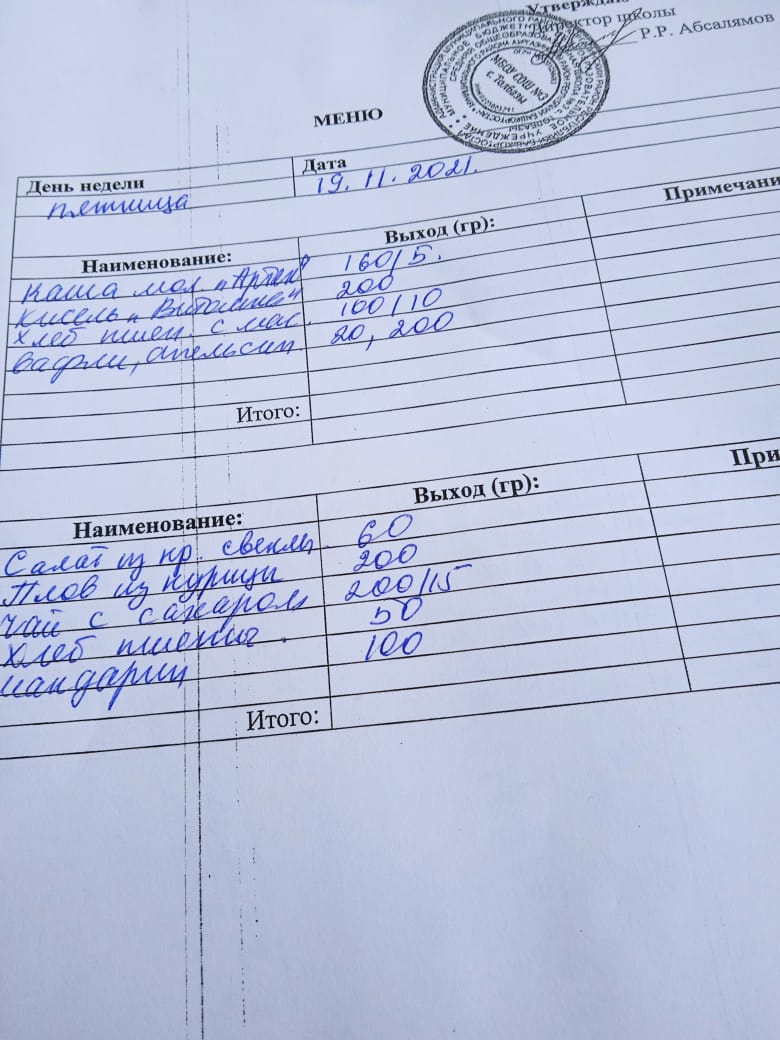 Утверждаю
Директор школы
Р.Р. Абсалямов
МБОУ СОШ №3
с. Толбазы
МЕНЮ
День недели
Дата
пятница
19.11.2021.
Наименование:
Выход (гр):
Примечани
Каша мол. "Артек"
160/5.
Кисель "Витошка"
200
Хлеб пшен. с мас.
100/10
Вафли, апельсин.
20, 200
Итого:
Наименование:
Выход (гр):
При
Салат из кр. свеклы.
60
Плов из курицы
200
Чай с сахаром
200/15
Хлеб пшенич.
50
мандарин
100
Итого: